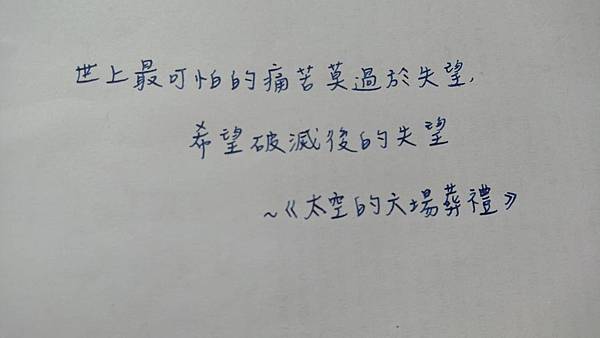 世上最可怕的痛苦莫過於失望,
希望破滅後的失望
~《太空的六場葬禮》